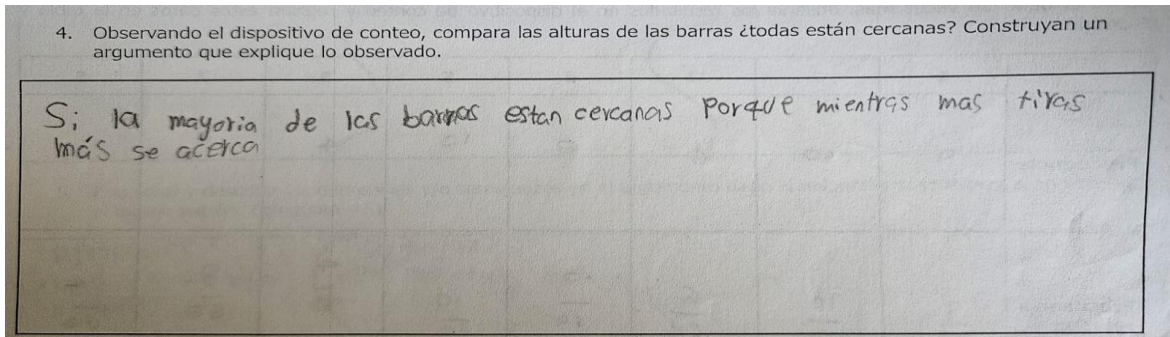 4. Observando el dispositivo de conteo, compara las alturas de las barras ¿todas están cercanas? Construyan un
argumento que explique lo observado.
Si la mayoria de las barras estan cercanas Porque mientras mas tiras
más se acerca